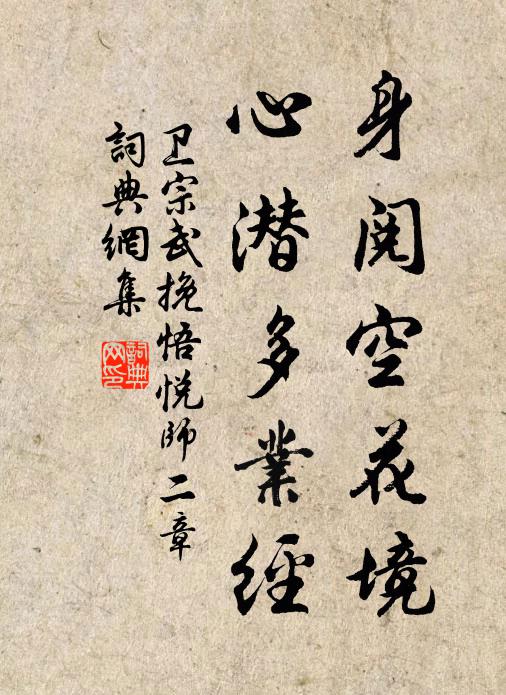 身閱空花境
心潜多業經
卫宗武挽悟悅師二章
詞典網集
詞典网印